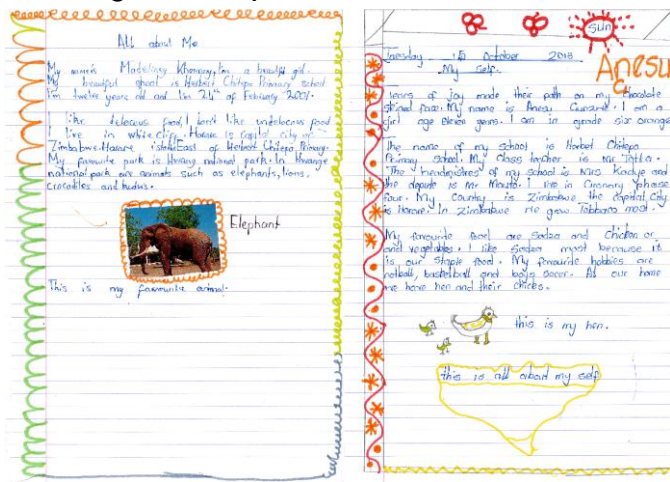 All about Me
My name is Matelina I'm a beautiful girl.
My beautiful school is Herbert Chitepo Primary school
I'm twelve years old and I'm 24th of February 2007.
I like delecous food, I don't like undelecous food
I live in white cliff. Harare is capital city of
Zimbabwe. Harare is East of Herbert Chitepo Primary.
My favourite park is Hwange national park. In Hwange
national park are animals such as elephants, lions,
crocodiles and kudus.
Elephant
This is my favourite animal.
sun
Tuesday October 2018
My self.
Anesu
C
Tears of joy made their path on my chocolate
skinned face. My name is Anesu I am a
girl age eleven years. I am in grade six orange
The name of my school is Herbet Chitepo
Primary school. My class teacher is Mr
The headmistress of my school is Mrs and
the depute is Mr I live in phase
four. My Country is Zimbabwe the capital City
is Harare. In Zimbabwe we grow Tobbaco most.
My favourite food are Sadza and Chicken or
and vegetables. I like Sadza most because it
is our staple food. My favourite hobbies are
netball, basketball and boys soccer. At our home
we have hen and their chicks.
this is my hen.
this is all about my self